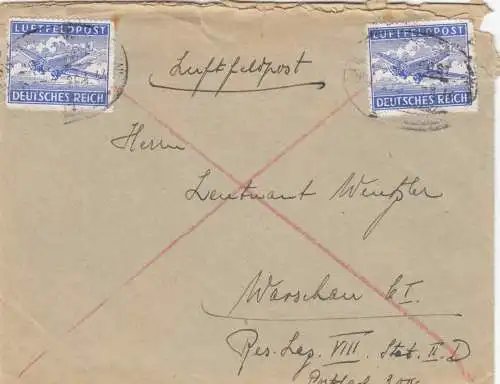 LUFTFELDPOST
DEUTSCHES REICH
LUFTFELDPOST
DEUTSCHES REICH
Luftfeldpost
Herrn
Leutnant
Warschau C I.
Res. Laz. VIII. Stat. II. D